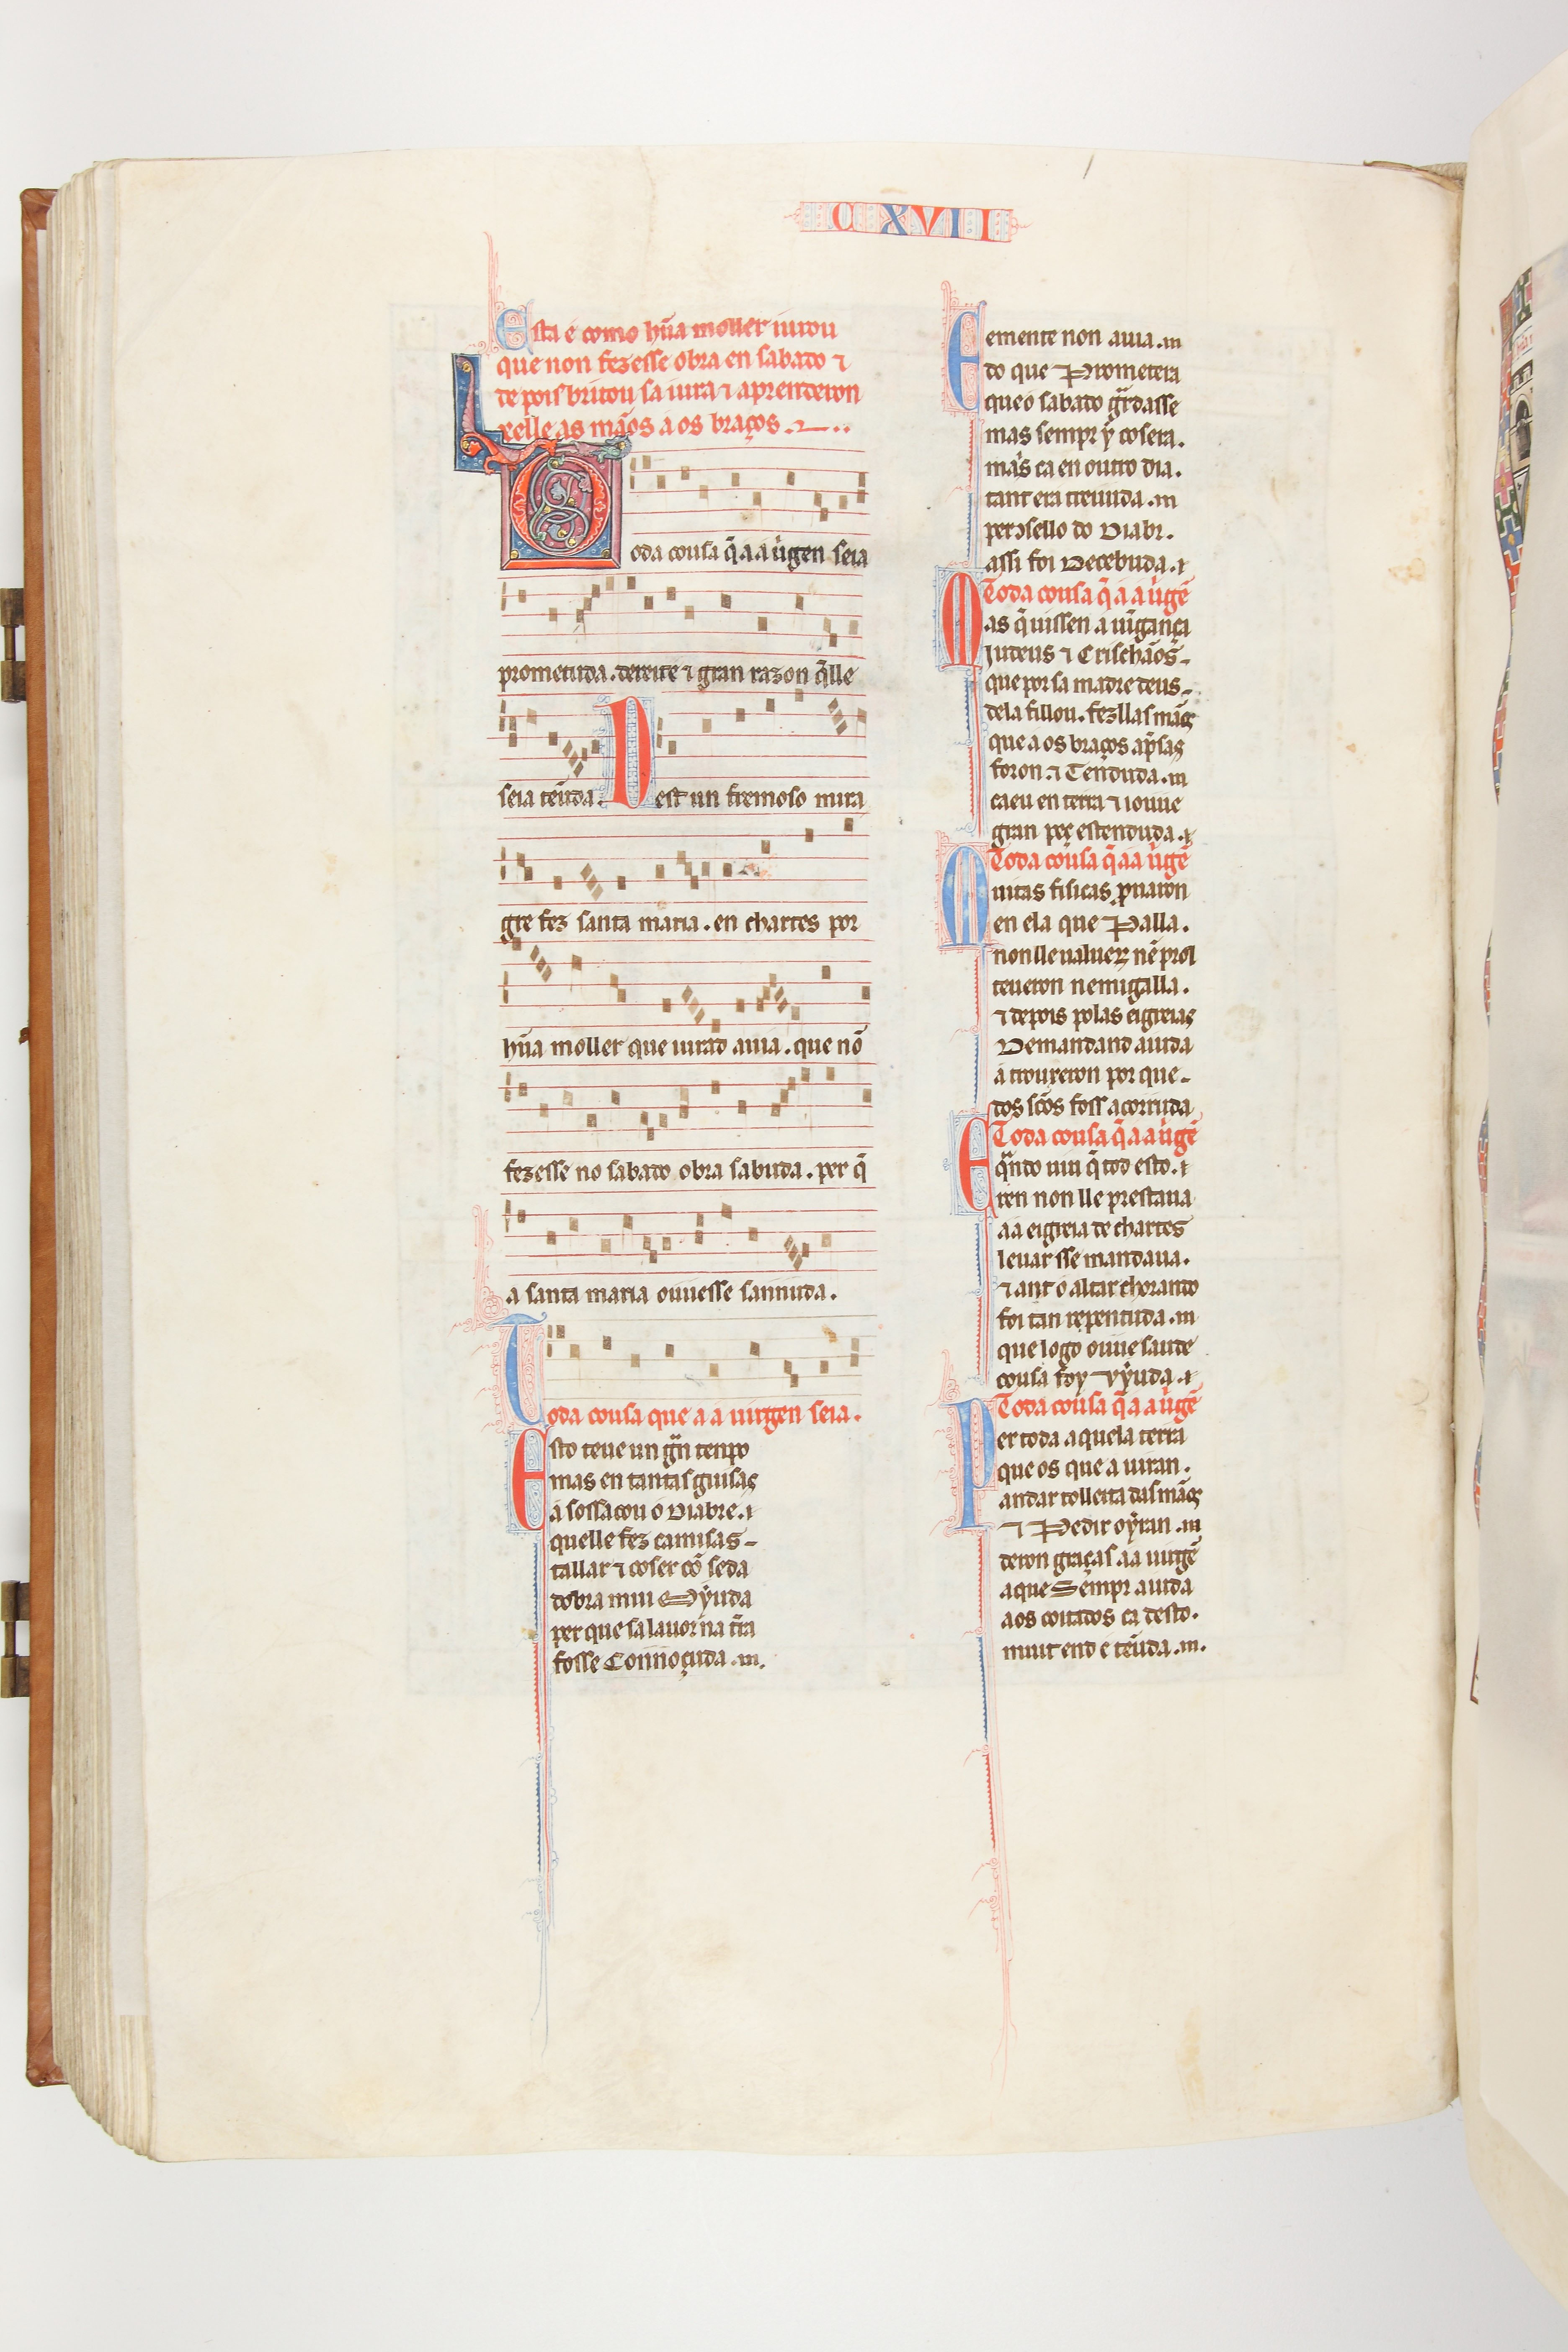 C XVII
Esta e como hũa moller iurou
que non fezesse obra en sabato ⁊
depois britou sa iura ⁊ aprenderon
xelle as mãos a os braços.
Toda cousa q̃ a a uirgen seia
prometuda. dereite ⁊ gran razon q̃lle
seia tẽuda. Dest un fremoso mira
gre fez santa maria. en chartes por
hũa moller que iurad auia. que nõ
fezesse no sabato obra sabuda. per q̃
a santa maria ouuesse sannuda.
Toda cousa que a a uirgen seia.
Esto teue un grãn tenpo
mas en tantas guisas
a sossacou o diabre. ⁊
quelle fez camisas
tallar ⁊ coser cõ seda
dobra mui mỹuda
per que sa lauor na t̃ra
fosse connoçuda.
E emente non auia.
do que prometera
que o sabato gr̃dasse
mas sempr ẏ cosera.
mais ca en outro dia.
tant era treuuda.
per ↄsello do diabr.
assi foi decebuda. ⁊
Toda cousa q̃ a a uirgẽ
Mas q̃ uissen a uingança
Iudeus ⁊ Crischãos
que por sa madre deus
dela fillou. fezllas mãos
que a os braços ap̃sas
foron. ⁊ tenduda.
caeu en terra ⁊ iouue
gran peç estenduda. ⁊
Toda cousa q̃ a a uirgẽ
Muitas fisicas prouaron
en ela que palla.
non lle ualuerõ nẽ prol
teueron nemigalla.
⁊ depois polas eigreias
demandand aiuda
a trouxeron por que
dos sc̃os foss acorruda
Toda cousa q̃ a a uirgẽ
E quãndo uiu q̃ tod esto. ⁊
ren non lle prestaua
a a eigreia de chartes
leuar sse mandaua.
⁊ ant o altar chorando
foi tan repentuda.
que logo ouue saude
cousa foy vyuda. ⁊
Toda cousa q̃ a a uirgẽ
Per toda aquela terra
que os que a uiran.
andar tolleita das mãos
⁊ pedir oẏran.
deron graças aa uirgẽ
a que sempr aiuda
aos coitados ca desto.
muit end e tẽuda.